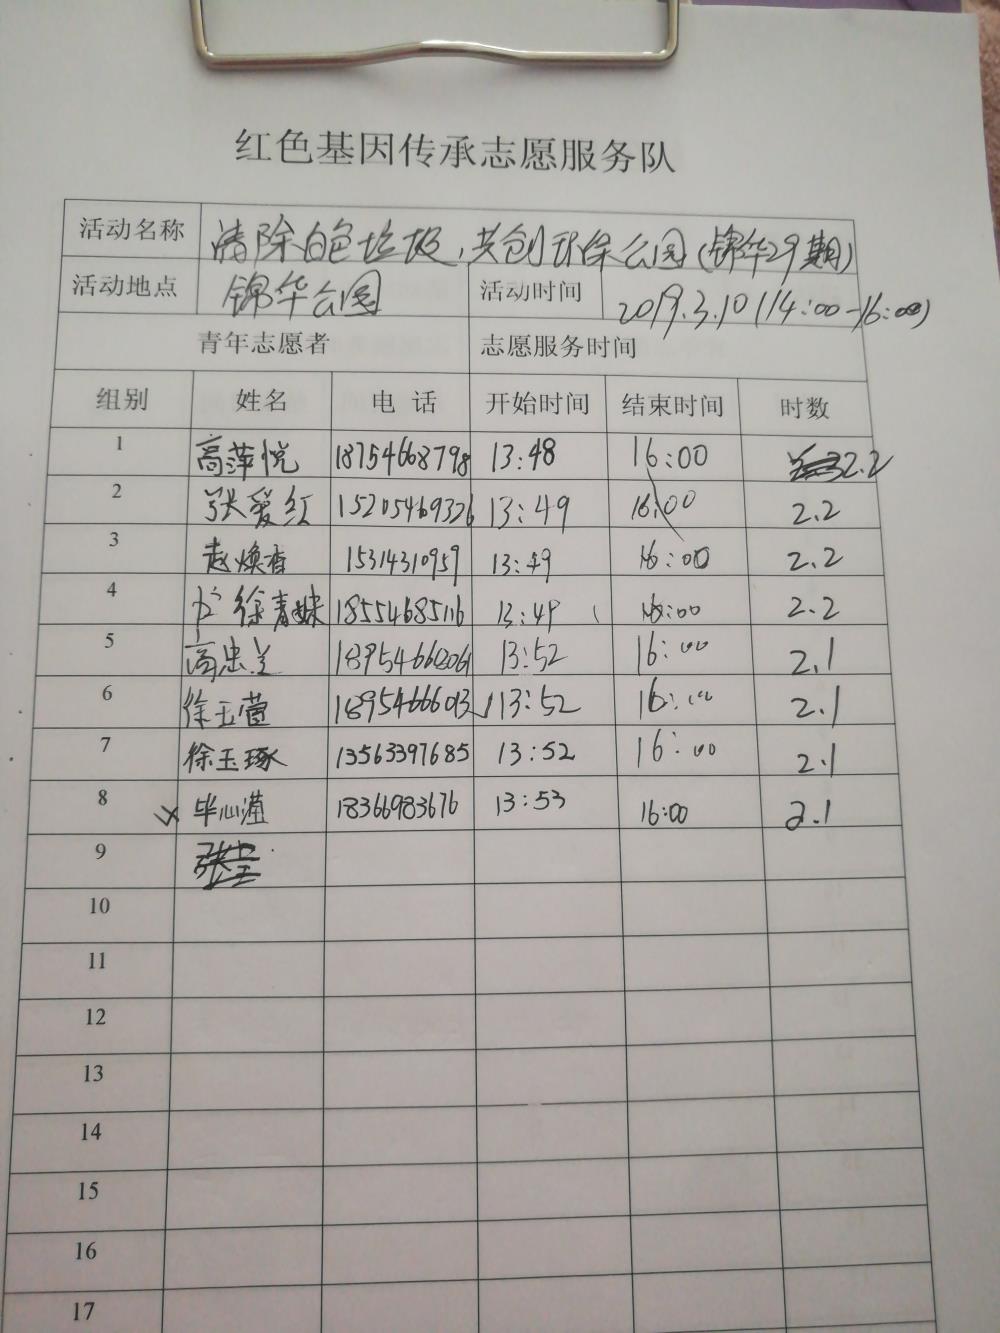 红色基因传承志愿服务队
活动名称 清除白色垃圾,共创环保公园(锦华29期)
活动地点 锦华公园 活动时间 2019.3.10(14:00-16:00)
青年志愿者 志愿服务时间
组别 姓名 电话 开始时间 结束时间 时数
1 高萍悦 18754668798 13:48 16:00 2.2
2 张爱红 15205469326 13:49 16:00 2.2
3 赵焕香 15314310959 13:49 16:00 2.2
4 徐青妹 18554685116 13:49 16:00 2.2
5 高忠兰 13:52 16:00 2.1
6 徐玉萱 18954666013 13:52 16:00 2.1
7 徐玉琢 13563397685 13:52 16:00 2.1
8 毕心滢 18366983676 13:53 16:00 2.1
9
10
11
12
13
14
15
16
17